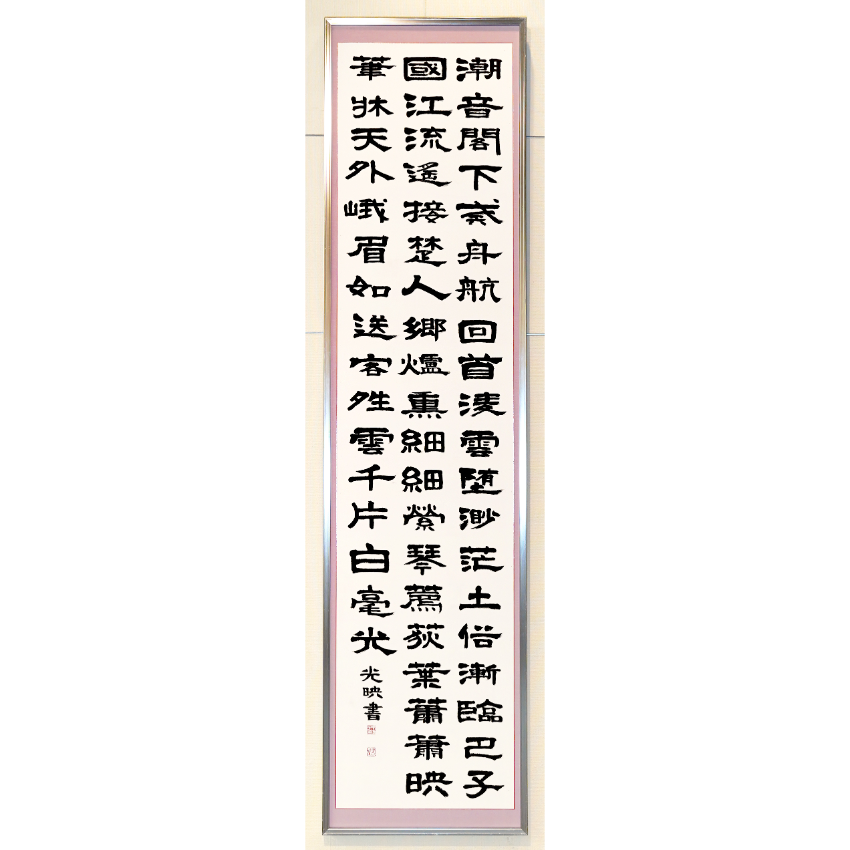 潮音閣下戒舟航回首淩雲堕渺茫土俗漸臨巴子
國江流遥接楚人鄉爐熏細細縈琴薦荻葉蕭蕭映
筆牀天外峨眉如送客夝雲千片白毫光
光映書